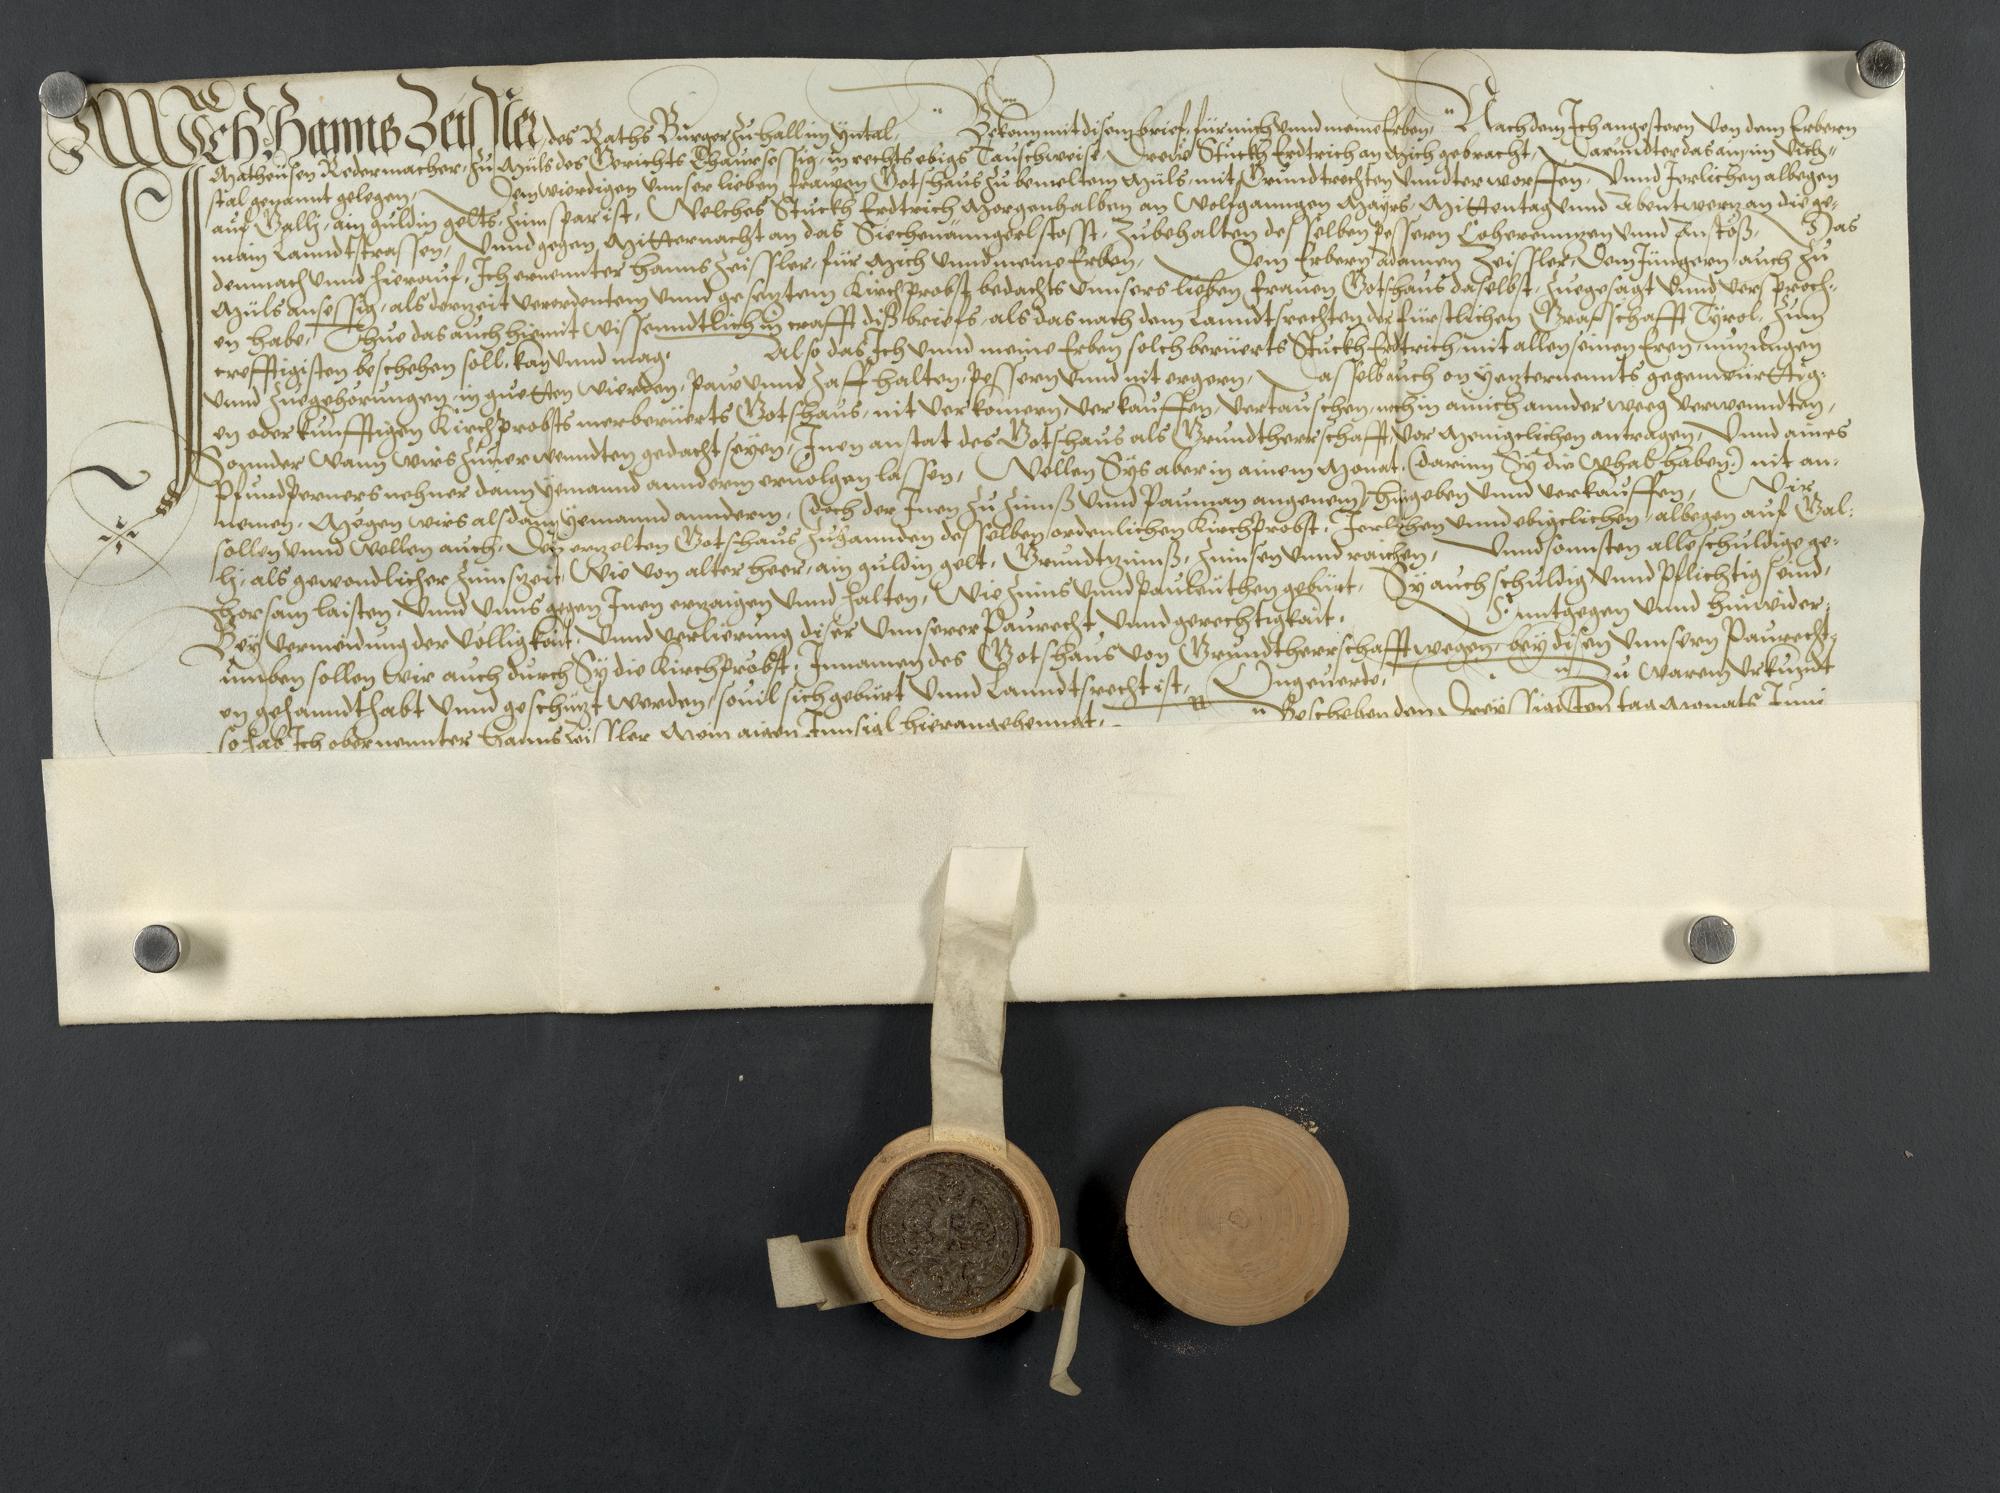 Ich Hanns Zeissler, des Raths Burger zu Hall im Yntal, Bekenn mit disem brief, für mich unnd meine Erben, Nachdem Ich angestern von dem Erbern
Matheüsen Redermacher, zu Müls des Gerichts Thaur sessig, in rechts ebigs Tauschweise, Dreie Stuckh Erdtrich an mich gebracht, Darundter das ain im Vich-
stal genannt gelegen, Dem wierdigen unnser lieben frawen Gotshaus zu bemeltem Müls, mit Grundtrechten unndterworffen, Unnd Jerlichen albegen
auf Gallj, ain guldin gelts, zinnspar ist, Welches Stuckh Erdtrich Morgenhalben an Wolfganngen Mayrs, Mittentag unnd Abentwerz an die ge-
main Lanndtstrassen, Unnd gegen Mitternacht an das Siechenanngerl stosst, Zubehalten desselben pessern Coherennzen unnd Anstöß, Das
demnach unnd hierauf, Ich ernennter Hanns Zeissler, für mich unnd meine Erben, Dem Erbern Adamen Zeissler, Dem Jüngern, auch zu
Müls ansessig, als derzeit verordentem unnd gesetztem Kirchprobst bedachts unnsers lieben frauen Gotshaus daselbst, zuegesagt unnd versproch-
en habe, Thue das auch hiemit wissenndtlich in crafft diß briefs, als das nach dem Lanndtsrechten der fürstlichen Grafschafft Tyrol, zum
crefftigisten beschehen soll, kan unnd mag, Also das Ich unnd meine Erben solch berüerts Stuckh Erdtrich, mit allen seinen Eren, nutzungen
unnd zuegehörungen, in guetten wierden, paw unnd zaff halten, pessern unnd nit ergern, Dasselb auch on yetzternennts gegenwürttig-
en oder kunfftigen Kirchprobsts merberüerts Gotshaus, nit verkömern, verkauffen, vertauschen, noch in ainich annder weeg verwenndten,
Sonnder wann wirs zuverwenndten gedacht seyen, Inen anstat des Gotshaus als Grundtherrschafft, vor menigclichen antragen, Unnd aines
Pfundt Perners nehner dann yemannd annderm ervolgen lassen, Wellen Sys aber in ainem Monat, (darinn Sy die Whal haben:) nit an-
nemen, Mogen wirs alsdann yemannd annderm, (doch der Inen zu zinnß unnd Pauman angenem) hingeben unnd verkauffen, Wir
sollen unnd wellen auch, Dem erzelten Gotshaus zuhannden desselben ordenlichen Kirchprobst, Jerlichen unnd ebigclichen, albegen auf Gal-
lj, als gewondlicher zinnszeit, Wie von alter heer, ain guldin gelt, Grundtzinnß, zinnsen unnd raichen, Unnd sonnsten alle schuldige ge-
horsam laisten, Unnd unns gegen Inen erzaigen unnd halten, Wie zinns unnd Pauleüthen gebürt, Sy auch schuldig unnd pflichtig seind,
Bey vermeidung der völligkait, unnd verlierung diser unnserer Paurecht unnd gerechtigkait, Enntgegen unnd hinwider-
umben sollen wir auch durch Sy die Kirchpröbst, Innamen des Gotshaus von Grundtherrschafft wegen, bey disen unnsern Paurecht-
en gehanndthabt unnd geschützt werden, sovil sich gebürt unnd Lanndtsrecht ist, Ongeuerde, Zu warem Urkundt
so hab Ich obernennter Hanns Zeissler mein aigen Innsigl hieran gehenngt, Beschehen den Dreyssigisten tag Monats Juni